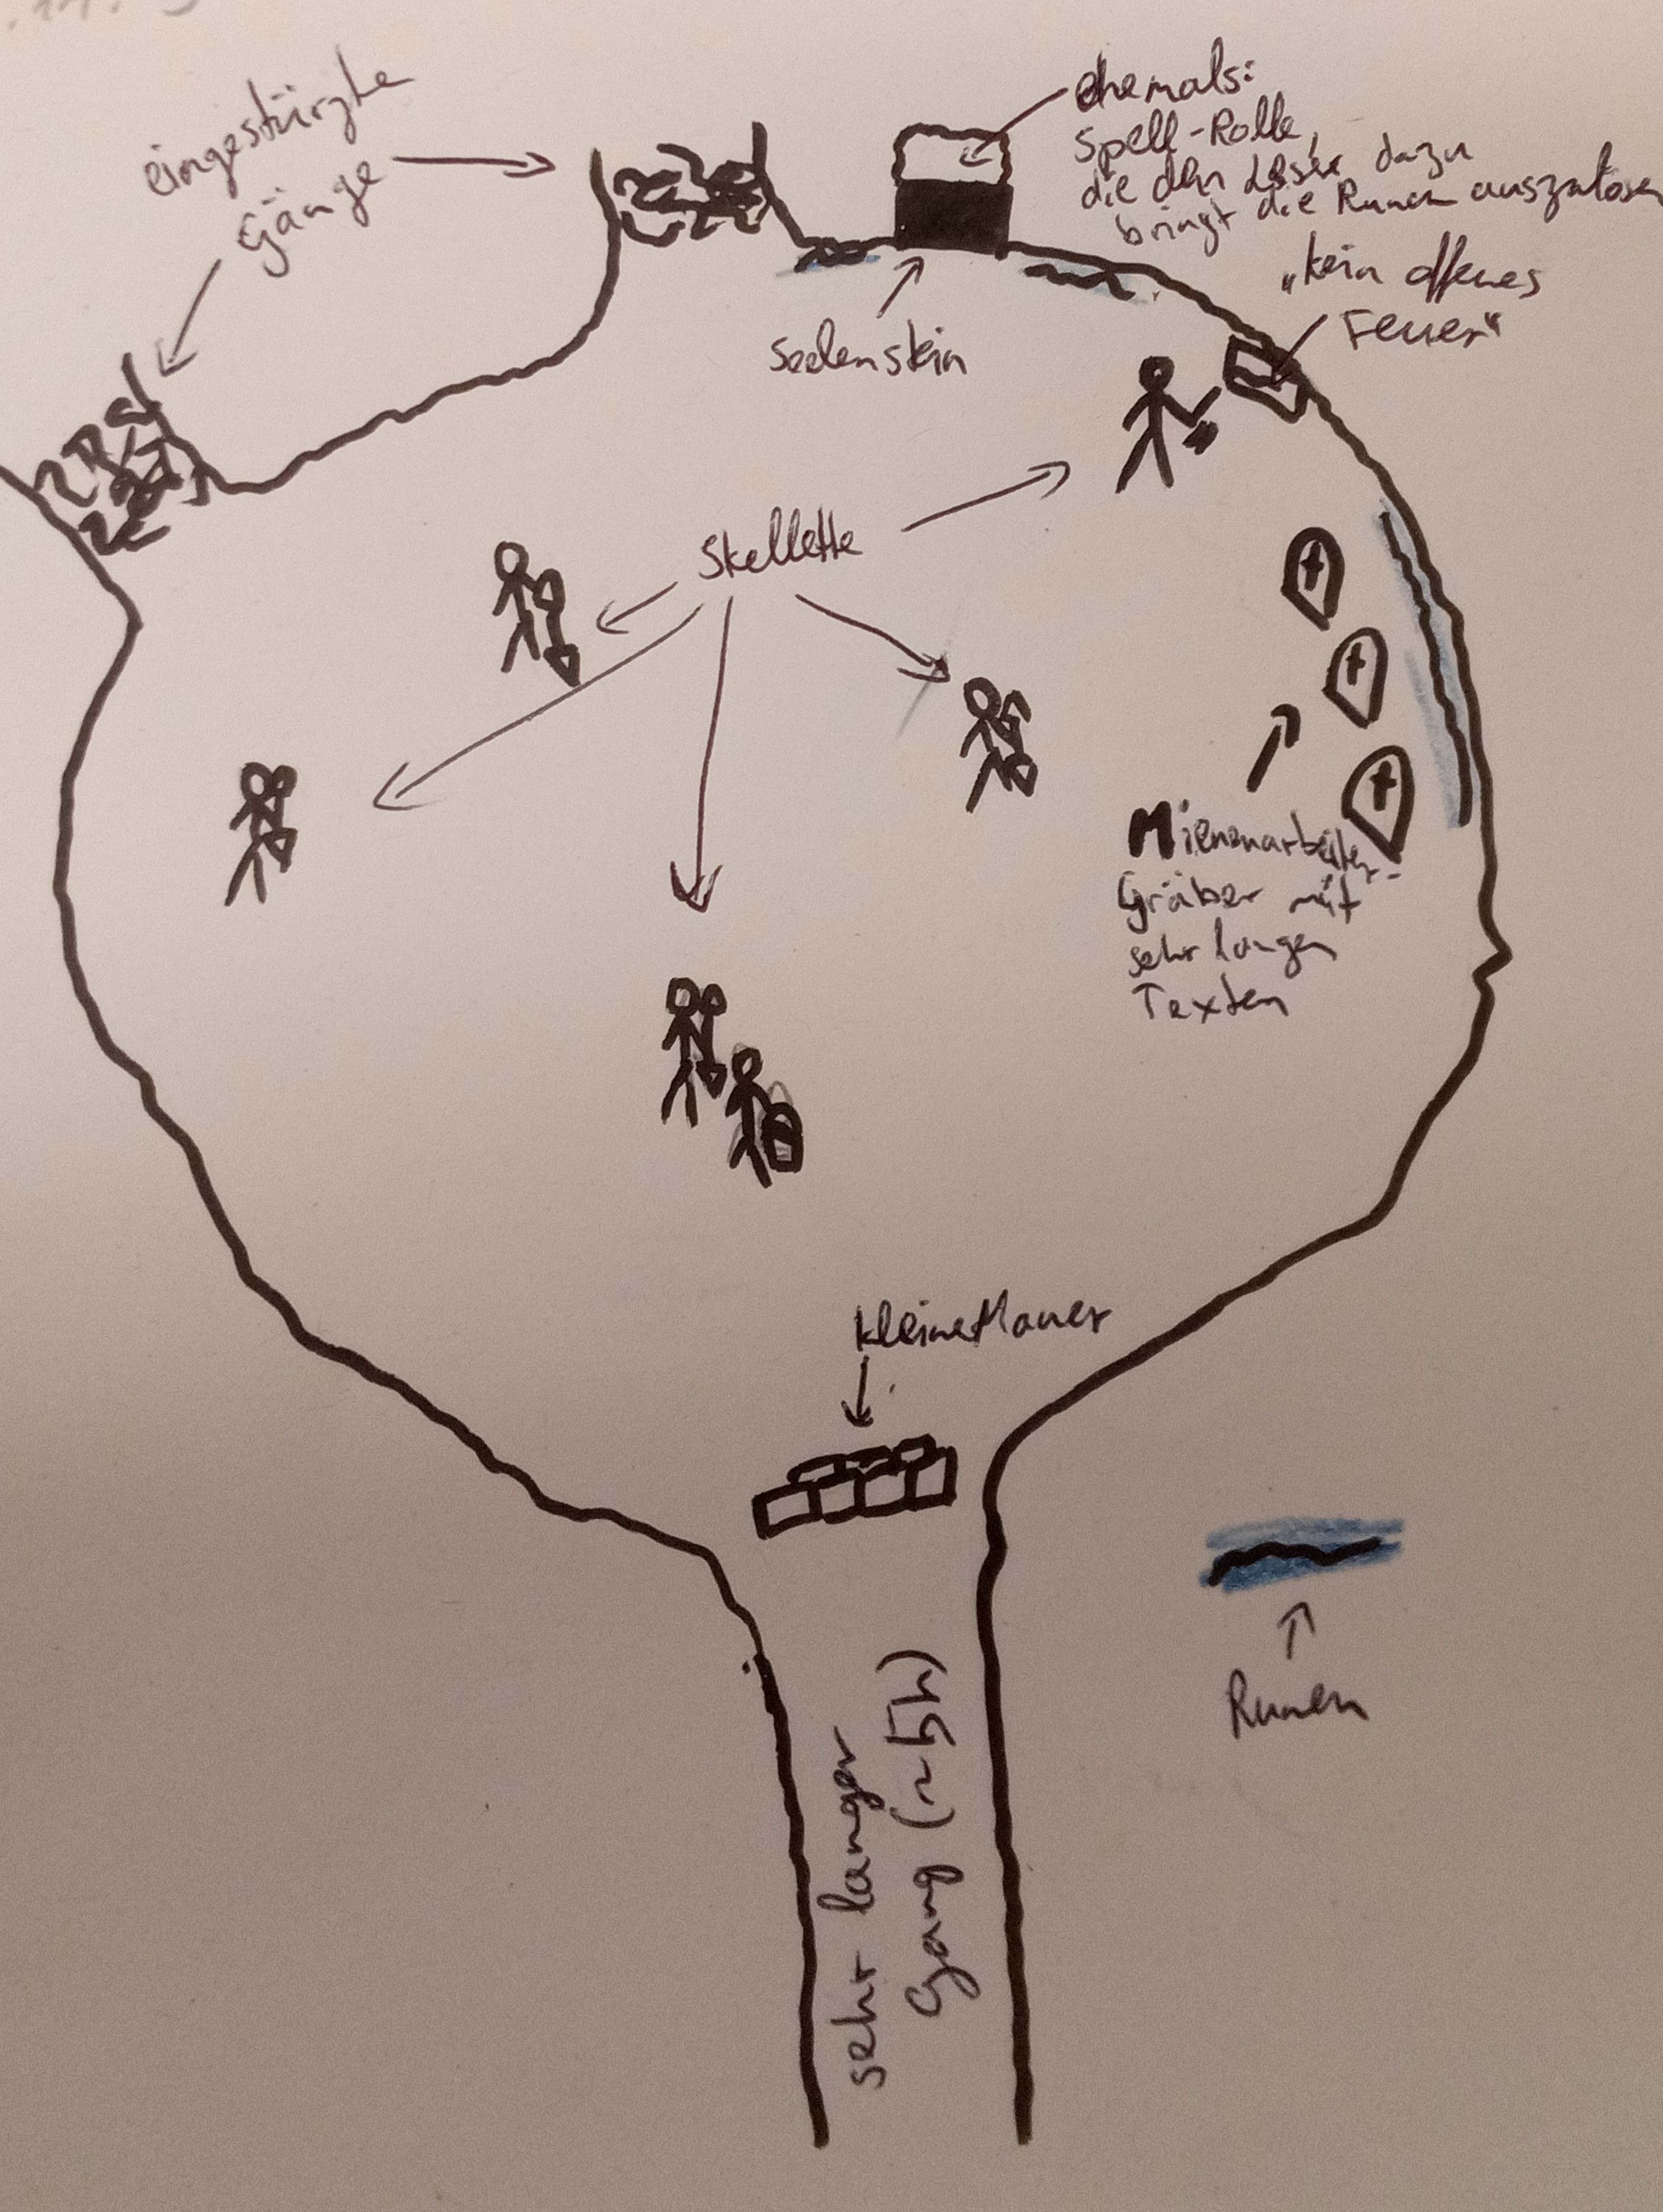 eingestürzte
Gänge
ehemals:
Spell-Rolle,
die den Leser dazu
bringt die Runen auszulösen
Seelenstein
"kein offenes
Feuer"
Skellette
Mienenarbeiter-
Gräber mit
sehr langen
Texten
kleine Mauer
sehr langer
Gang (~5h)
Runen